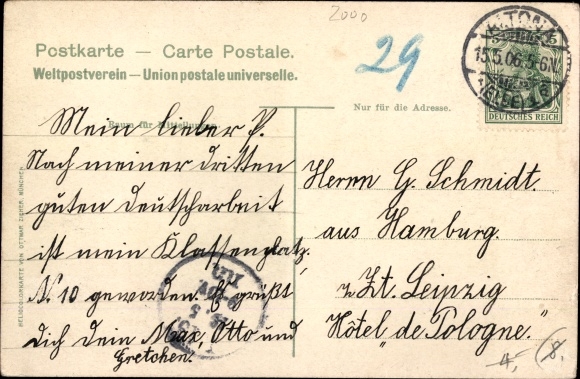 2000
29
Postkarte — Carte Postale.
Weltpostverein — Union postale universelle.
15.5.06. 5-6N.
DEUTSCHES REICH
Nur für die Adresse.
Raum für Mitteilungen.
Mein lieber P.
Nach meiner dritten
guten Deutscharbeit
ist mein Klassenplatz
N. 10 geworden. Es grüßt
Dich Dein Max, Otto und
Gretchen.
Herrn G. Schmidt.
aus Hamburg.
z. Zt. Leipzig
Hôtel „de Pologne."
HELIOCOLORKARTE VON OTTMAR ZIEHER, MÜNCHEN
4,
8.